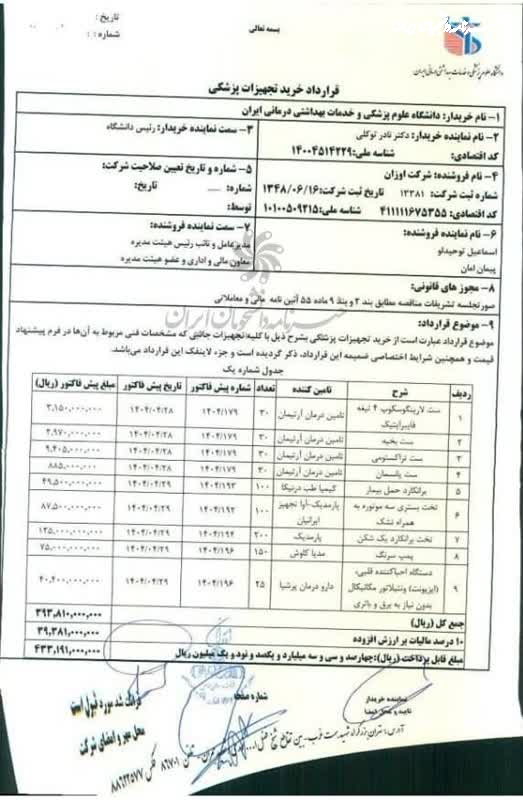 تاریخ :
شماره :
بسمه تعالی
دانشگاه علوم پزشکی و خدمات بهداشتی درمانی ایران
قرارداد خرید تجهیزات پزشکی
۱- نام خریدار: دانشگاه علوم پزشکی و خدمات بهداشتی درمانی ایران
۲- نام نماینده خریدار: دکتر نادر توکلی
۳- سمت نماینده خریدار: رئیس دانشگاه
کد اقتصادی: شناسه ملی: ۱۴۰۰۴۵۱۴۲۲۹
۴- نام فروشنده: شرکت اوزان
۵- شماره و تاریخ تعیین صلاحیت شرکت:
شماره ثبت شرکت: ۱۳۳۸۱ تاریخ ثبت شرکت: ۱۳۴۸/۰۶/۱۶
شماره: تاریخ:
کد اقتصادی: ۴۱۱۱۱۱۶۷۵۳۵۵ شناسه ملی: ۱۰۱۰۰۵۰۹۲۱۵
توسط:
۶- نام نماینده فروشنده:
۷- سمت نماینده فروشنده:
اسماعیل توحیدلو
مدیرعامل و نائب رئیس هیئت مدیره
پیمان امان
معاون مالی و اداری و عضو هیئت مدیره
۸- مجوز های قانونی:
صورتجلسه تشریفات مناقصه مطابق بند ۲ و بند ۹ ماده ۵۵ آئین نامه مالی و معاملاتی
خبرنامه دانشجویان ایران
۹- موضوع قرارداد:
موضوع قرارداد عبارت است از خرید تجهیزات پزشکی بشرح ذیل با کلیه تجهیزات جانبی که مشخصات فنی مربوط به آن‌ها در فرم پیشنهاد
قیمت و همچنین شرایط اختصاصی ضمیمه این قرارداد، ذکر گردیده است و جزء لاینفک این قرارداد می‌باشد.
جدول شماره یک
ردیف شرح تامین کننده تعداد شماره پیش فاکتور تاریخ پیش فاکتور مبلغ پیش فاکتور (ریال)
۱ ست لارینگوسکوپ ۴ تیغه فایبراپتیک تامین درمان آرتیمان ۳۰ ۱۴۰۴/۱۷۹ ۱۴۰۴/۰۴/۲۸ ۳,۱۵۰,۰۰۰,۰۰۰
۲ ست بخیه تامین درمان آرتیمان ۳۰ ۱۴۰۴/۱۷۹ ۱۴۰۴/۰۴/۲۸ ۲,۹۷۰,۰۰۰,۰۰۰
۳ ست تراکستومی تامین درمان آرتیمان ۳۰ ۱۴۰۴/۱۷۹ ۱۴۰۴/۰۴/۲۸ ۹,۴۰۵,۰۰۰,۰۰۰
۴ ست پانسمان تامین درمان آرتیمان ۳۰ ۱۴۰۴/۱۷۹ ۱۴۰۴/۰۴/۲۸ ۸۸۵,۰۰۰,۰۰۰
۵ برانکارد حمل بیمار کیمیا طب درنیکا ۱۰۰ ۱۴۰۴/۱۹۳ ۱۴۰۴/۰۴/۲۹ ۴۹,۵۰۰,۰۰۰,۰۰۰
۶ تخت بستری سه موتوره به همراه تشک پارمدیک-آوا تجهیز ایرانیان ۱۰۰ ۱۴۰۴/۱۹۲ ۱۴۰۴/۰۴/۲۹ ۸۷,۵۰۰,۰۰۰,۰۰۰
۷ تخت برانکارد یک شکن پارمدیک ۲۰۰ ۱۴۰۴/۱۹۴ ۱۴۰۴/۰۴/۲۹ ۱۲۵,۰۰۰,۰۰۰,۰۰۰
۸ پمپ سرنگ مدیا کاوش ۱۵۰ ۱۴۰۴/۱۹۶ ۱۴۰۴/۰۴/۲۹ ۷۵,۰۰۰,۰۰۰,۰۰۰
۹ دستگاه احیاکننده قلبی، (ایزیونت) ونتیلاتور مکانیکال بدون نیاز به برق و باتری دارو درمان پرشیا ۲۵ ۱۴۰۴/۱۹۶ ۱۴۰۴/۰۴/۲۹ ۴۰,۴۰۰,۰۰۰,۰۰۰
جمع کل (ریال) ۳۹۳,۸۱۰,۰۰۰,۰۰۰
۱۰ درصد مالیات بر ارزش افزوده ۳۹,۳۸۱,۰۰۰,۰۰۰
مبلغ قابل پرداخت (ریال): چهارصد و سی و سه میلیارد و یکصد و نود و یک میلیون ریال ۴۳۳,۱۹۱,۰۰۰,۰۰۰
نماینده خریدار
شماره صفحه
محل مهر و امضای شرکت